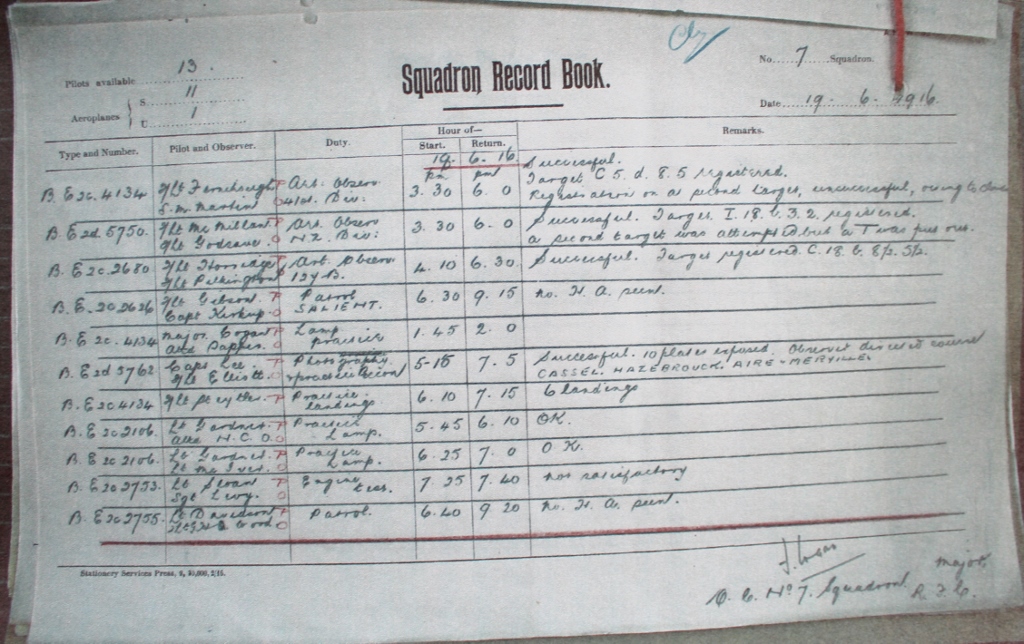 Pilots available 13.
Squadron Record Book.
No. 7 Squadron.
Aeroplanes { S. 11
U. 1
Date 19. 6. 1916.
Type and Number. Pilot and Observer. Duty. Hour of— Remarks.
Start. Return.
19. 6. 16
pm pm Successful.
B.E 2c. 4134 Art. Observ 3.30 6.0 Target C 5. d. 8.5 registered.
S.m. Martin O 41st. Div: Registration on a second target, unsuccessful, owing to
B.E 2d 5750. 2/Lt McMillan P Art Observ 3.30 6.0 Successful. Target I. 18. b. 3.2. registered.
O N.Z. Div: a second target was attempted but a T was put out.
B.E 2c. 2680 2/Lt P Art. Observ 4.10 6.30 Successful. Target registered C. 18. b. 8½. 5½.
2/Lt Pilkington
B.E. 2c 2626 2/Lt Gibson. P Patrol 6.30 9.15 No. H. A. seen.
Capt O SALIENT.
B.E 2c. 4134 Major. P Lamp 1.45 2.0
and O practice
B.E 2d 5762 Capt Lee. P Photography 5-15 7.5 Successful. 10 plates exposed. Observer directed course
2/Lt Elliott O practice CASSEL. HAZEBROUCK. AIRE-MERVILLE.
B.E 2c 4134 2/Lt P Practice 6.10 7.15 6 landings
landings
B.E 2c 2106. Lt Gardner. P Practice 5.45 6.10 OK.
and N.C.O. O Lamp.
B.E 2c 2106. Lt Gardner P Practice 6.25 7.0 O K.
Lt McIver. O Lamp.
B.E 2c 2753. Lt Sloan P Engine 7.25 7.40 not satisfactory
Sgt Levy. O test.
B.E 2c 2755. Lt Davidson P Patrol. 6.40 9.20 No. H. A. seen.
Wood O
Stationery Services Press, 6, 50,000, 2/15.
Major
O. C. No 7. Squadron. R. F. C.